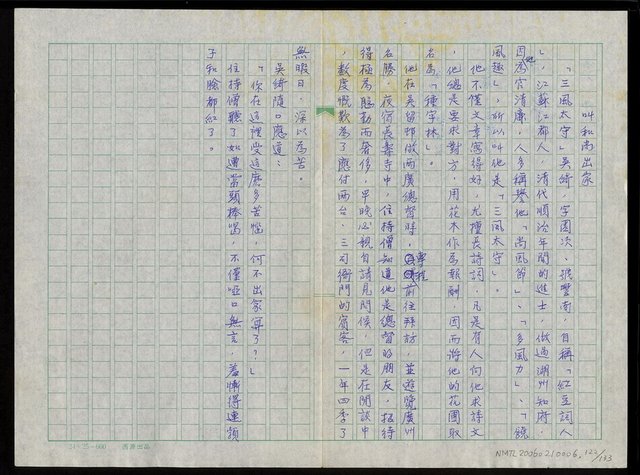 叫和尚出家
「三風太守」吳綺，字園次，號聽南，自稱「紅豆詞人
」，江蘇江都人，清代順治年間的進士，做過湖州知府，
因他為官清廉，人多稱譽他「尚風節」、「多風力」、「饒
風趣」，所以叫他是「三風太守」。
他不僅文章寫得好，尤擅長詩詞，凡是有人向他求詩文
，他總是要求對方，用花木作為報酬，因而將他的花園取
名為「種字林」。
他在吳留邨做兩廣總督時，專程前往拜訪，並遊覽廣州
名勝，夜宿長壽寺中，住持僧知道他是總督的朋友，招待
得極為慇勤而奢侈，早晚必親自請見問候，但是在閒談中
，數度慨歎為了應付兩台、三司衙門的賓客，一年四季了
無暇日，深以為苦。
吳綺隨口應道：
「你在這裡受這麼多苦惱，何不出家算了？」
住持僧聽了如遭當頭棒喝，不僅啞口無言，羞慚得連頸
子和臉都紅了。
31×25=600
NMTL20060210006 122/133